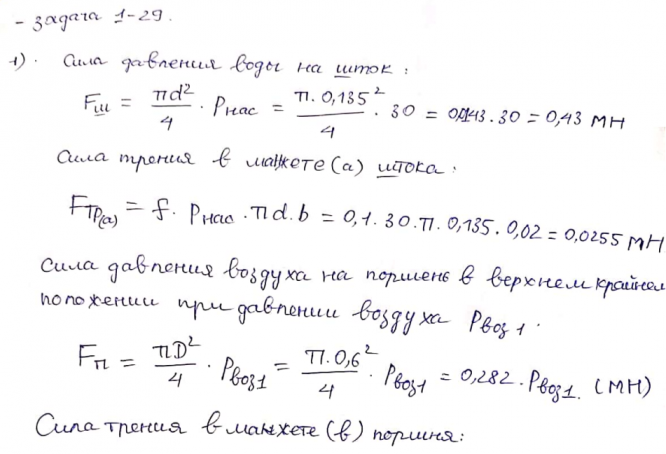 - задача 1-29.
1). Сила давления воды на шток:
Fш = πd²/4 · Pнас = π·0,135²/4 · 30 = 0,0143·30 = 0,43 МН
Сила трения в манжете (а) штока:
Fтр(а) = f · Pнас · πd·b = 0,1·30·π·0,135·0,02 = 0,0255 МН
Сила давления воздуха на поршень в верхнем крайнем
положении при давлении воздуха Pвоз1.
Fп = πD²/4 · Pвоз1 = π·0,6²/4 · Pвоз1 = 0,282 · Pвоз1. (МН)
Сила трения в манжете (в) поршня: